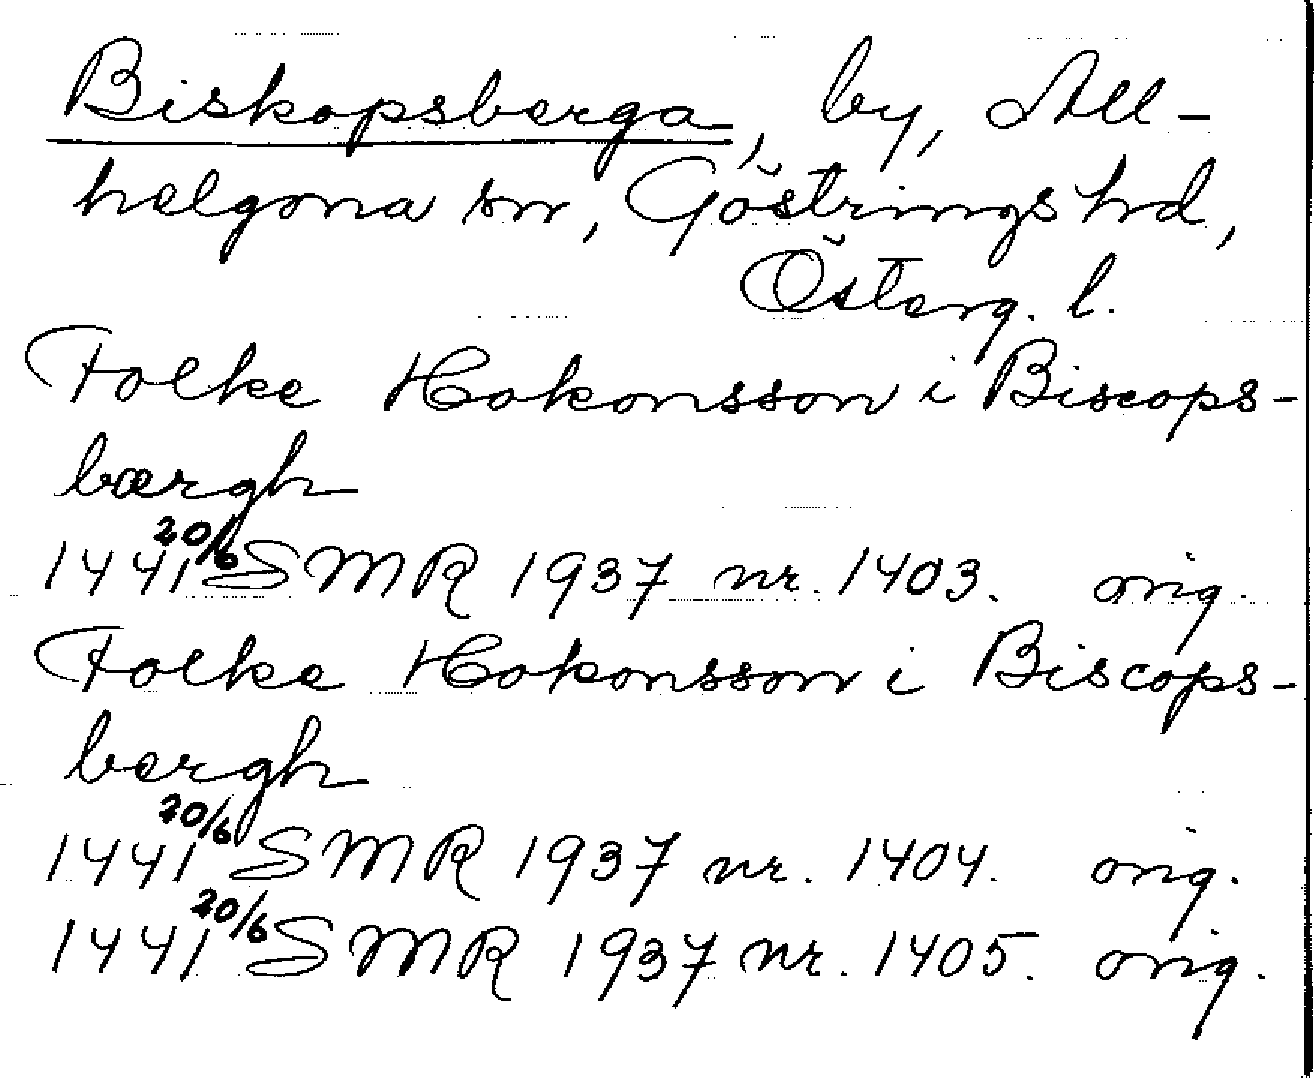 Biskopsberga, by, All-
helgona sn, Göstrings hd,
Österg. l.
Folke Hakonsson i Biscops-
bærgh
1441 20/6 SMR 1937 nr. 1403. orig.
Folke Hakonsson i Biscops-
bergh
1441 20/6 SMR 1937 nr. 1404. orig.
1441 20/6 SMR 1937 nr. 1405. orig.